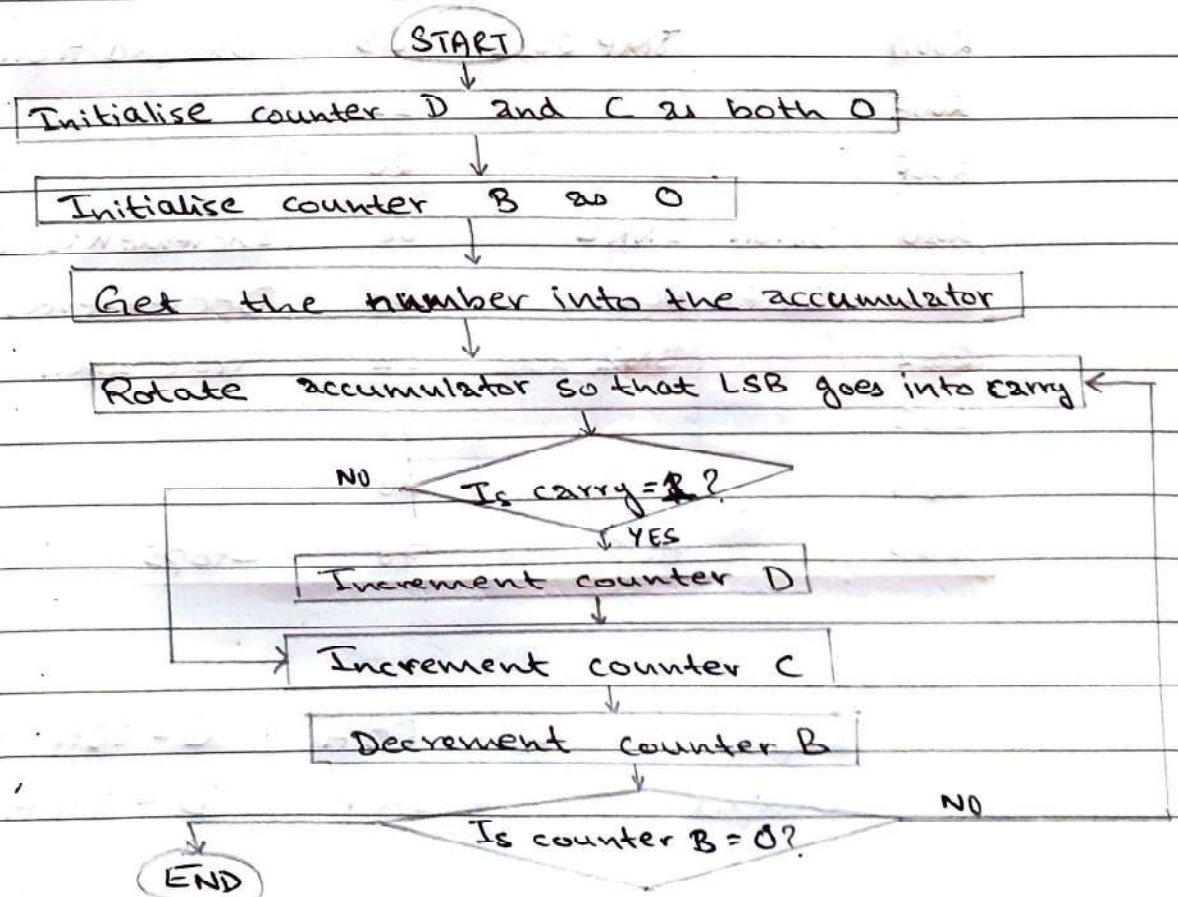 START
Initialise counter D and C as both 0
Initialise counter B as 0
Get the number into the accumulator
Rotate accumulator so that LSB goes into carry
NO
Is carry=1?
YES
Increment counter D
Increment counter C
Decrement counter B
NO
Is counter B=0?
END